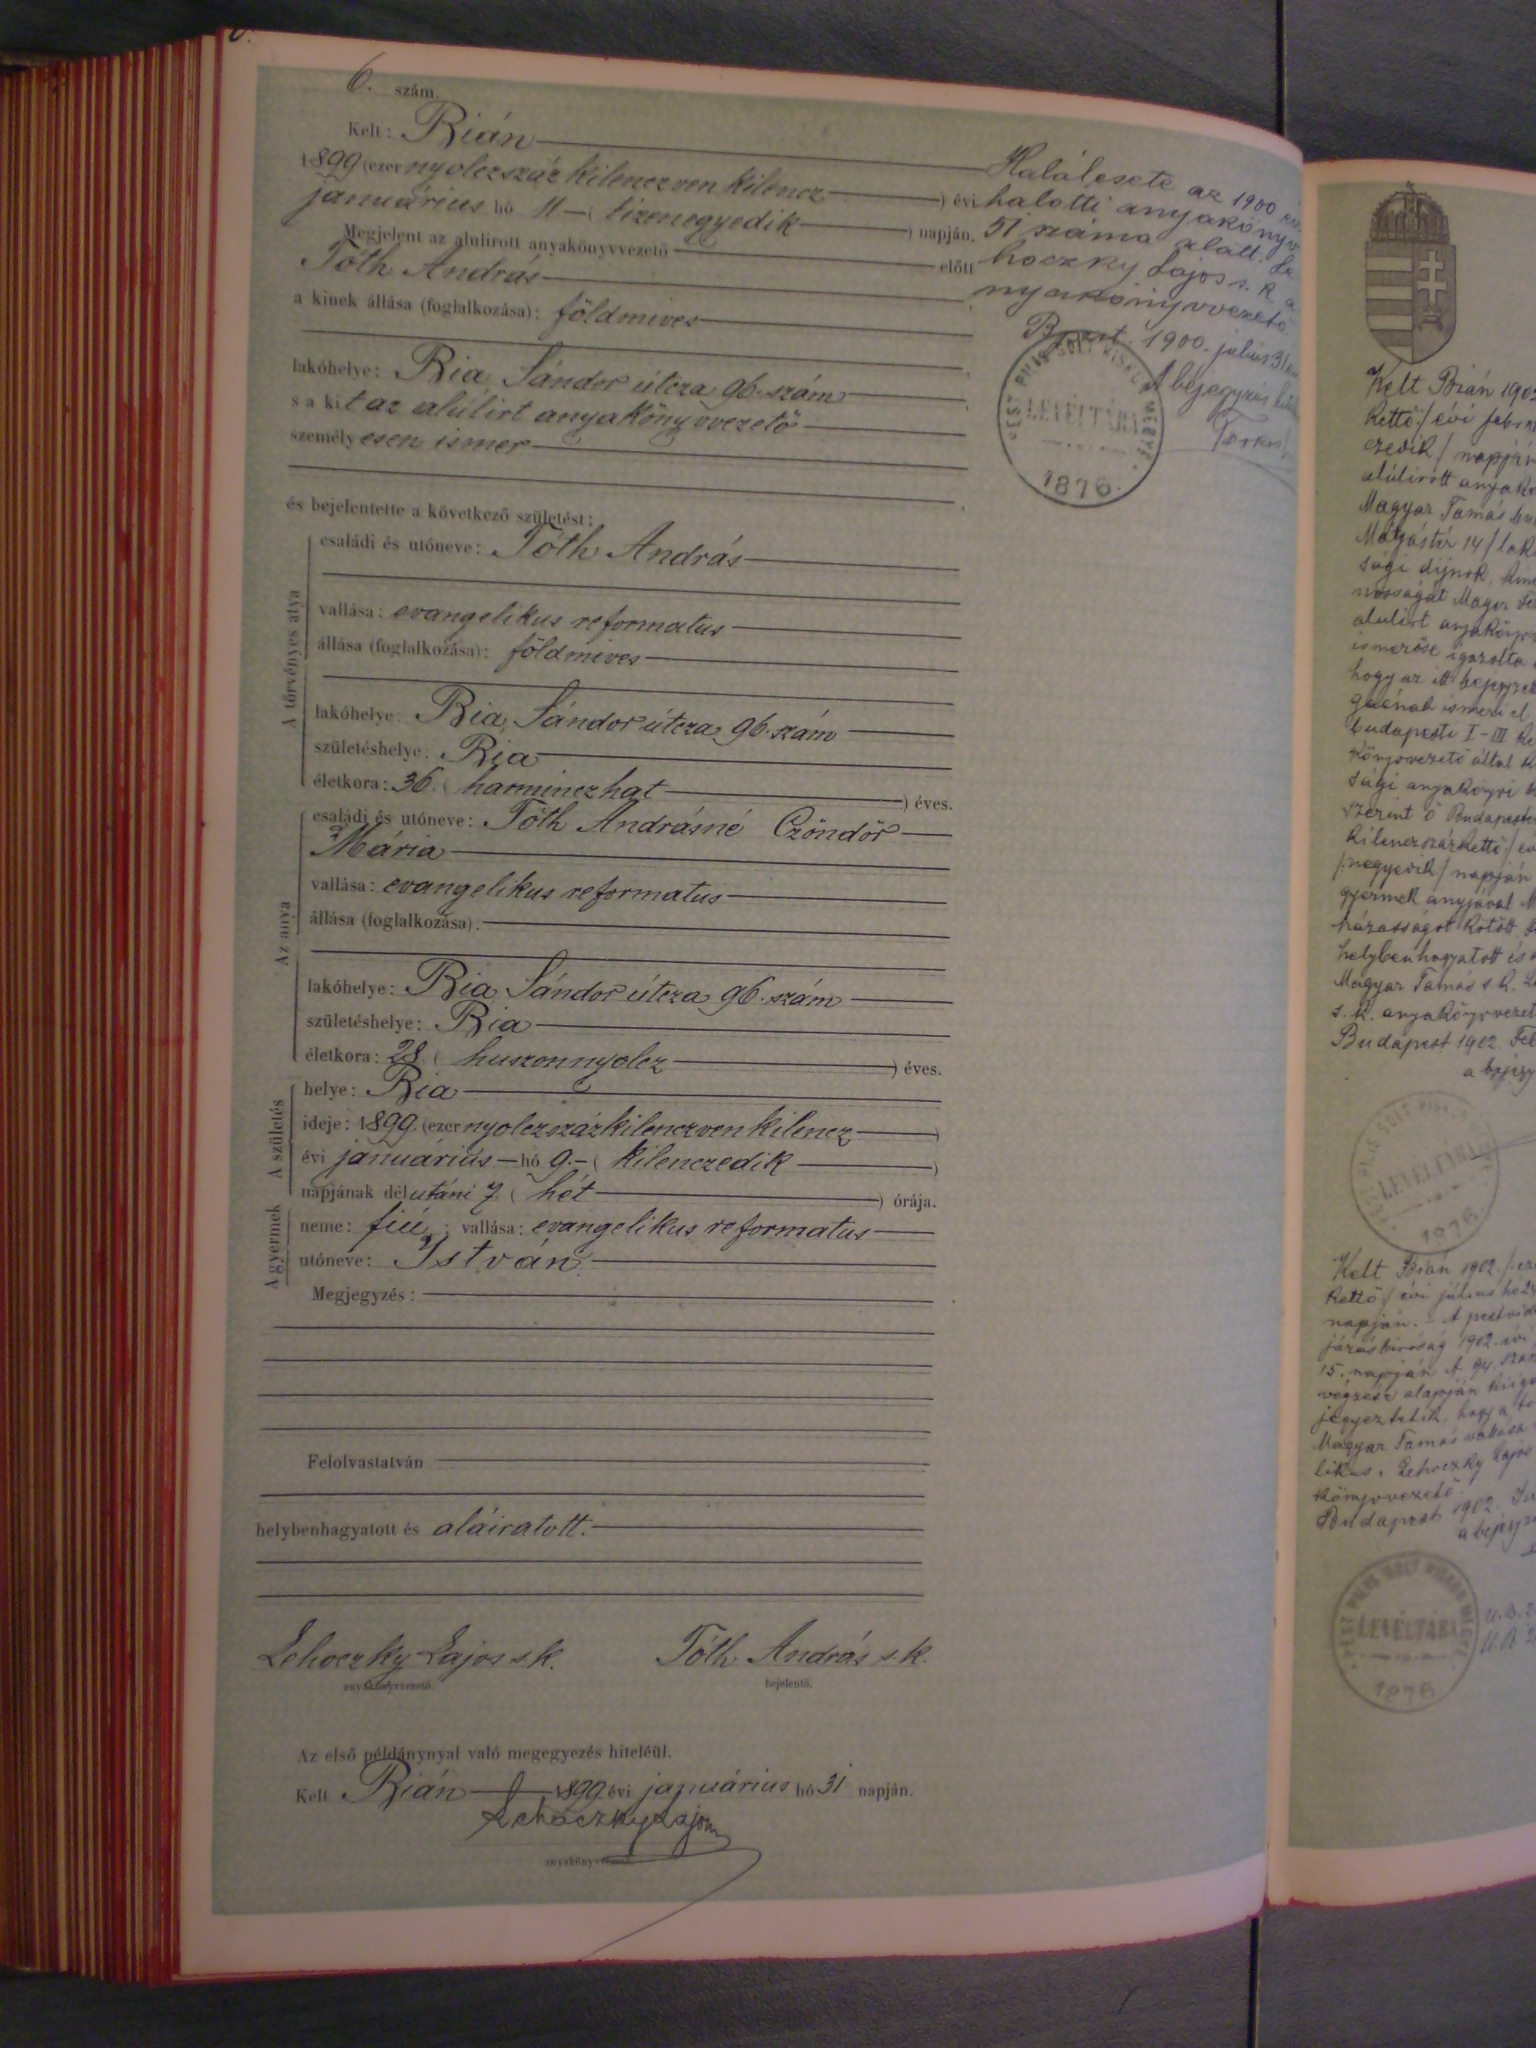 6. szám.
Kelt: Bián
1899 (ezer nyolczszáz kilenczven kilencz ) évi
januárius hó 11 – ( tizenegyedik ) napján,
Megjelent az alulirott anyakönyvvezető előtt
Tóth András
a kinek állása (foglalkozása): földmives
lakóhelye: Bia, Sándor útcza 96. szám
s a kit az alúlirt anyakönyvvezető
személyesen ismer
és bejelentette a következő születést:
A törvényes atya
családi és utóneve: Tóth András
vallása: evangelikus reformatus
állása (foglalkozása): földmives
lakóhelye: Bia, Sándor útcza 96. szám
születéshelye: Bia
életkora: 36. ( harminczhat ) éves.
Az anya
családi és utóneve: Tóth Andrásné Czöndör
Mária
vallása: evangelikus reformatus
állása (foglalkozása):
lakóhelye: Bia, Sándor útcza 96. szám
születéshelye: Bia
életkora: 28. ( huszonnyolcz ) éves.
A születés
helye: Bia
ideje: 1899. (ezer nyolczszázkilenczven kilencz )
évi januárius – hó 9. – ( kilenczedik )
napjának délutáni 7. ( hét ) órája.
A gyermek
neme: fiú ; vallása: evangelikus reformatus
utóneve: István
Megjegyzés:
Felolvastatván
helybenhagyatott és aláiratott.
Lehoczky Lajos s.k. Tóth András s.k.
anyakönyvvezető. bejelentő.
Az első példánynyal való megegyezés hiteléül.
Kelt Bián 1899 évi januárius hó 31 napján.
Lehoczky Lajos
anyakönyvvezető.
Halálesete az 1900
halotti anyakönyv
51 száma alatt. Le
hoczky Lajos s. k. a
nyakönyvvezető
Bpest. 1900. július 31
A bejegyzés
LEVÉLTÁRA
1876.
Kelt Bián 1902
kettő/ évi
czedik / napján
alúlirott
Magyar Tamás
Mátyástér 14/
sági dijnok,
alulirt
ismerőse igazolta
hogy az itt
ismeri el
budapesti I-III
könyvvezető által
sági anyakönyvi
szerint ő Budapesten
kilenczszázkettő/
/:negyedik/ napján
gyermek anyjával
házasságot kötött.
helybenhagyatott és
Magyar Tamás s.k.
s.k. anyakönyvvezető
Budapest 1902
LEVÉLTÁRA
1876.
Kelt Bián 1902.
kettő/ évi július hó
napján. – A pestvidéki
járásbiróság 1902. évi
15. napján A 94.
végzése alapján
hogy a
Magyar Tamás vallása
likus. Lehoczky Lajos
könyvvezető
Budapest 1902
LEVÉLTÁRA
1876